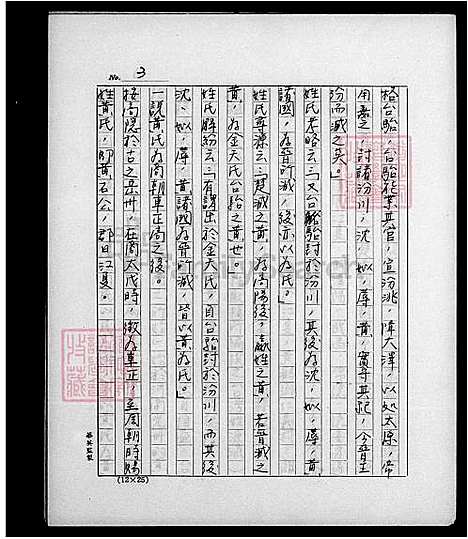 No. 3
格台駘，台駘能業其官，宣汾洮，障大澤，以処太原，帝
用嘉之，討諸汾川，沈、姒、蓐、黃，實守其祀，今晉主
汾而滅之矣。」
姓氏考略云：「又台駘討於汾川，其後為沈、姒、蓐、黃
諸國，為晉所滅，後亦以為氏。」
姓氏尋源云：「楚滅之黃，為高陽後，嬴姓之黃，若晉滅之
黃，為金天氏台駘之黃也。」
姓氏辯紛云：「有謂出於金天氏，自台駘討於汾川，而其後
沈、姒、蓐、黃諸國為晉所滅，皆以黃為氏。」
一說黃氏為商朝車正局之後。
按高隱於古之岳卅，在商太戊時，徵為車正，至周朝時賜
姓黃氏，即黃石公，郡曰江夏。
(12×25)